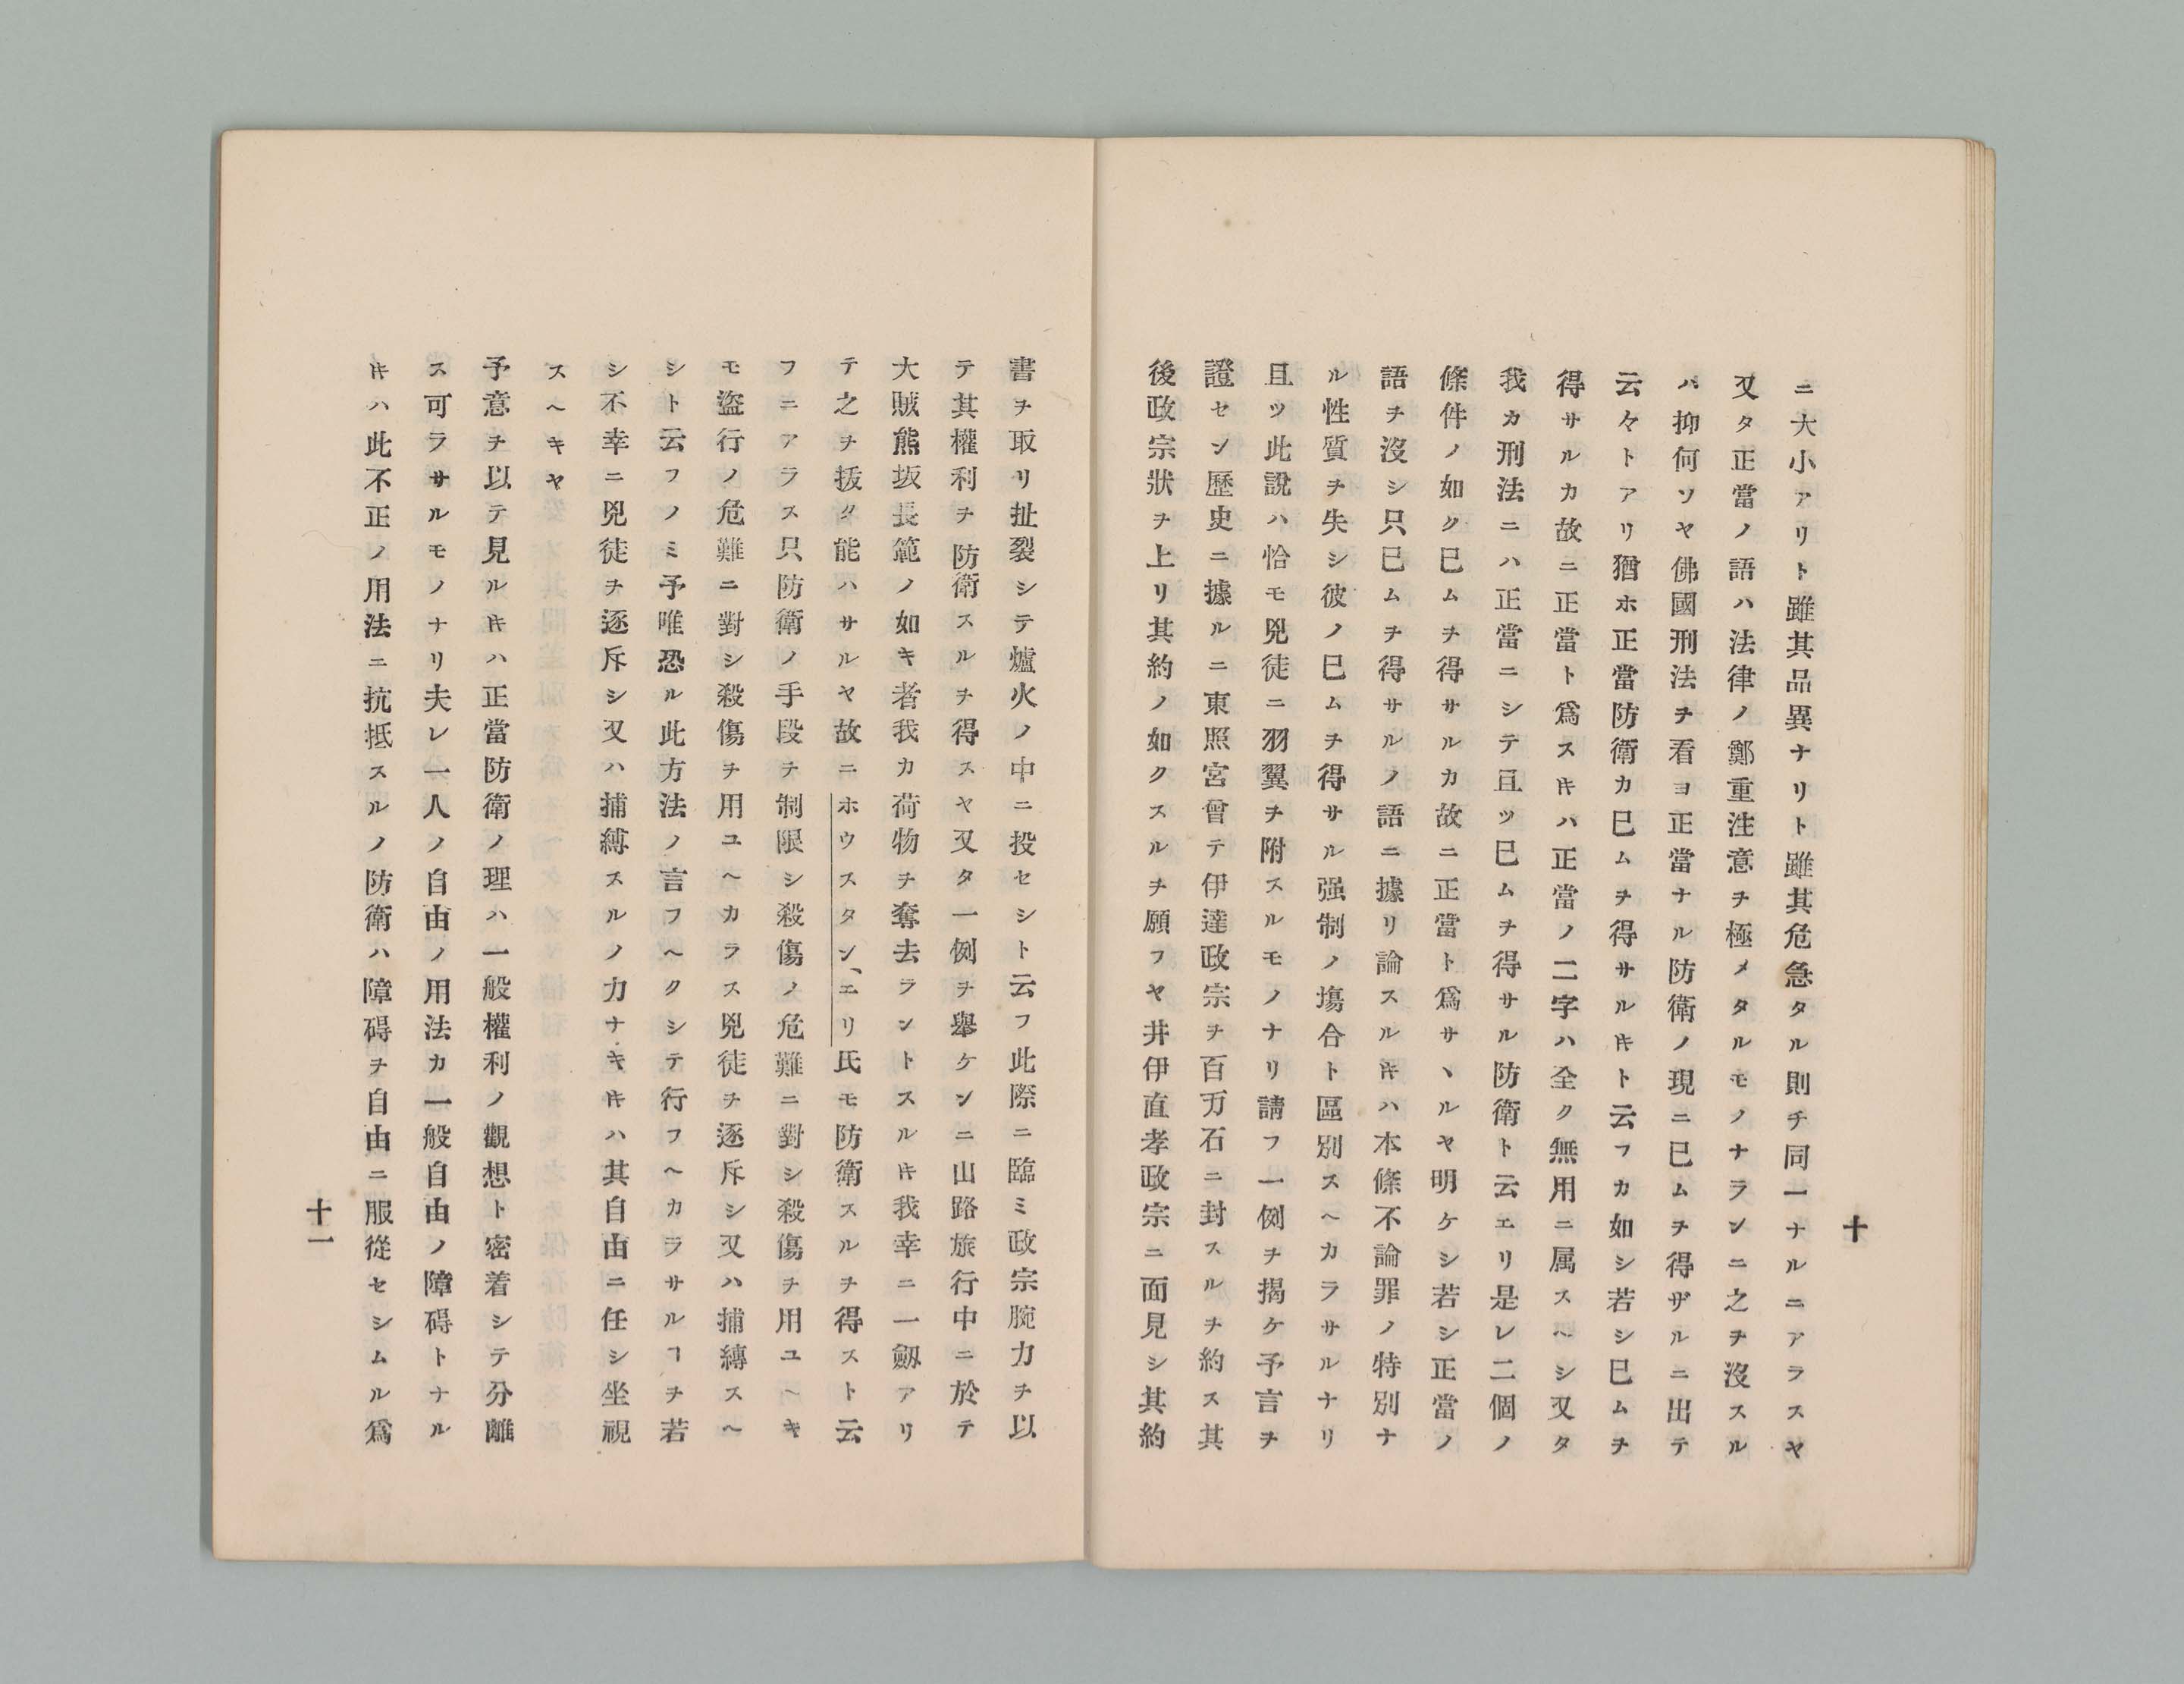 十
ニ大小アリト雖其品異ナリト雖其危急タル則チ同一ナルニアラスヤ
又タ正當ノ語ハ法律ノ鄭重注意ヲ極メタルモノナランニ之ヲ沒スル
ハ抑何ソヤ佛國刑法ヲ看ヨ正當ナル防衛ノ現ニ已ムヲ得ザルニ出テ
云々トアリ猶ホ正當防衛カ已ムヲ得サルキト云フカ如シ若シ已ムヲ
得サルカ故ニ正當ト爲スキハ正當ノ二字ハ全ク無用ニ属スヘシ又タ
我カ刑法ニハ正當ニシテ且ツ已ムヲ得サル防衛ト云エリ是レ二個ノ
條件ノ如ク已ムヲ得サルカ故ニ正當ト爲サヽルヤ明ケシ若シ正當ノ
語ヲ沒シ只已ムヲ得サルノ語ニ據リ論スルキハ本條不論罪ノ特別ナ
ル性質ヲ失シ彼ノ已ムヲ得サル强制ノ塲合ト區別スヘカラサルナリ
且ツ此說ハ恰モ兇徒ニ羽翼ヲ附スルモノナリ請フ一例ヲ揭ケ予言ヲ
證セン歷史ニ據ルニ東照宮曾テ伊達政宗ヲ百万石ニ封スルヲ約ス其
後政宗狀ヲ上リ其約ノ如クスルヲ願フヤ井伊直孝政宗ニ面見シ其約
書ヲ取リ扯裂シテ爐火ノ中ニ投セシト云フ此際ニ臨ミ政宗腕力ヲ以
テ其權利ヲ防衛スルヲ得スヤ又タ一例ヲ舉ケンニ山路旅行中ニ於テ
大賊熊坂長範ノ如キ者我カ荷物ヲ奪去ラントスルキ我幸ニ一劔アリ
テ之ヲ拔ク能ハサルヤ故ニホウスタン、エリ氏モ防衛スルヲ得スト云
フニアラス只防衛ノ手段ヲ制限シ殺傷ノ危難ニ對シ殺傷ヲ用ユヘキ
モ盜行ノ危難ニ對シ殺傷ヲ用ユヘカラス兇徒ヲ逐斥シ又ハ捕縛スヘ
シト云フノミ予唯恐ル此方法ノ言フヘクシテ行フヘカラサルヿヲ若
シ不幸ニ兇徒ヲ逐斥シ又ハ捕縛スルノ力ナキキハ其自由ニ任シ坐視
スヘキヤ
予意ヲ以テ見ルキハ正當防衛ノ理ハ一般權利ノ觀想ト密着シテ分離
ス可ラサルモノナリ夫レ一人ノ自由ノ用法カ一般自由ノ障碍トナル
キハ此不正ノ用法ニ抗抵スルノ防衛ハ障碍ヲ自由ニ服從セシムル爲
十一